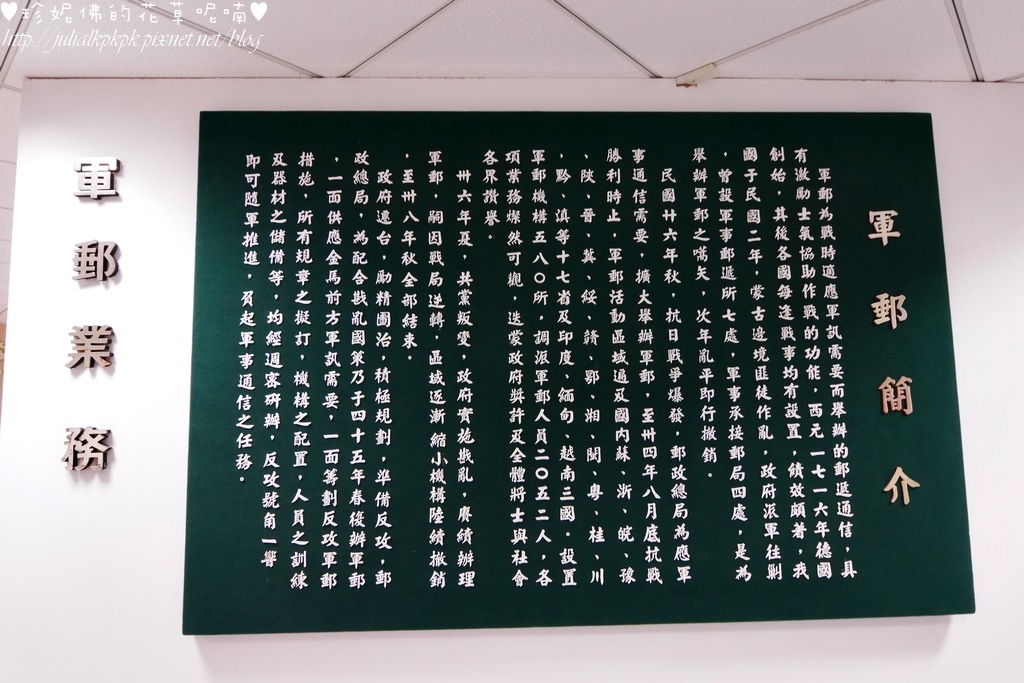 ♥珍妮佛的花草呢喃♥
http://julialkpkpk.pixnet.net/blog
軍郵業務
軍郵簡介
軍郵為戰時適應軍訊需要而舉辦的郵遞通信，具
有激勵士氣協助作戰的功能，西元一七一六年德國
創始，其後各國每逢戰事均有設置，績效頗著，我
國于民國二年，蒙古邊境匪徒作亂，政府派軍往剿
，曾設軍事郵遞所七處，軍事承接郵局四處，是為
舉辦軍郵之嚆矢，次年亂平即行撤銷。
民國廿六年秋，抗日戰爭爆發，郵政總局為應軍
事通信需要，擴大舉辦軍郵，至卅四年八月底抗戰
勝利時止，軍郵活動區域遍及國內蘇、浙、皖、豫
、陝、晉、冀、綏、贛、鄂、湘、閩、粵、桂、川
、黔、滇等十七省及印度、緬甸、越南三國。設置
軍郵機構五八０所，調派軍郵人員二０五二人，各
項業務燦然可觀，迭蒙政府獎許及全體將士與社會
各界讚譽。
卅六年夏，共黨叛變，政府實施戡亂，賡續辦理
軍郵，嗣因戰局逆轉，區域逐漸縮小機構陸續撤銷
，至卅八年秋全部結束。
政府遷台，勵精圖治，積極規劃，準備反攻，郵
政總局，為配合戡亂國策乃于四十五年春復辦軍郵
，一面供應金馬前方軍訊需要，一面籌劃反攻軍郵
措施，所有規章之擬訂，機構之配置，人員之訓練
及器材之儲備等，均經週密研辦，反攻號角一響
即可隨軍推進，負起軍事通信之任務。